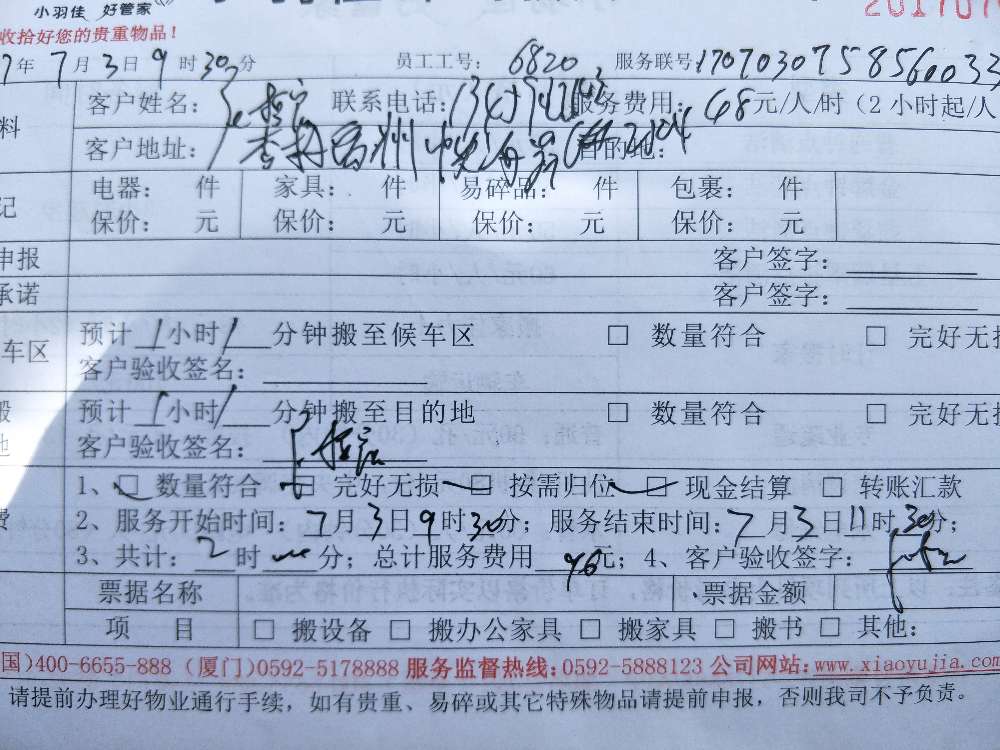 小羽佳 好管家
收拾好您的贵重物品!
2017070
7年7月3日9时30分 员工工号: 6820 服务联号: 1707030758560033
客户姓名: 联系电话: 服务费用: 48元/人/时(2小时起/人
料
客户地址: 目的地:
电器: 件 家具: 件 易碎品: 件 包裹: 件
记
保价: 元 保价: 元 保价: 元 保价: 元
申报 客户签字:
承诺 客户签字:
预计1小时/分钟搬至候车区 □ 数量符合 □ 完好无损
车区
客户验收签名:
搬 预计1小时/分钟搬至目的地 □ 数量符合 □ 完好无损
地 客户验收签名:
1、□ 数量符合 □ 完好无损 □ 按需归位 □ 现金结算 □ 转账汇款
2、服务开始时间: 7月3日9时30分; 服务结束时间: 7月3日11时30分;
费 3、共计: 2时分; 总计服务费用96元; 4、客户验收签字:
票据名称 票据金额
项 目 □ 搬设备 □ 搬办公家具 □ 搬家具 □ 搬书 □ 其他:
国)400-6655-888 (厦门)0592-5178888 服务监督热线:0592-5888123 公司网站:www.xiaoyujia.com
请提前办理好物业通行手续，如有贵重、易碎或其它特殊物品请提前申报，否则我司不予负责。